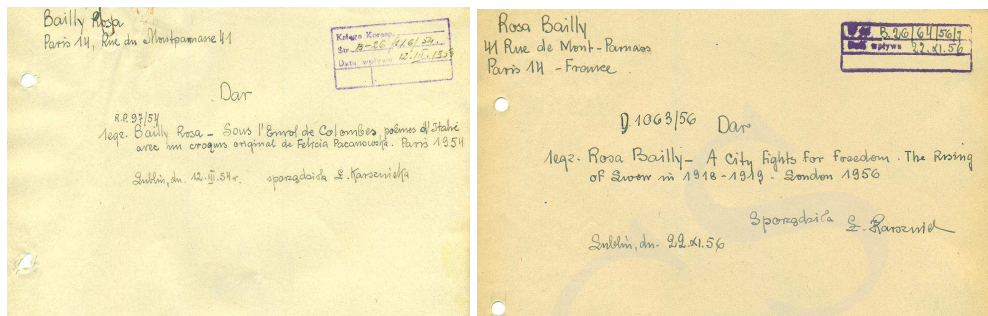 Bailly Rosa
Paris 14, Rue du Montparnasse 41
Księga Koresp.
Str. B-26/216/54.
Data wpływu 12.III.1954
Dar
R.P. 97/54
1egz. Bailly Rosa – Sous l'Envol de Colombes, poèmes d'Italie
avec un croquis original de Felicia Pacanowska. Paris 1954
Lublin, dn. 12.III.54 r. sporządziła Z. Karsznicka
Rosa Bailly
41 Rue de Mont-Parnass
Paris 14 – France.
B.26/64/56/7
Data wpływu 22.XI.56
D.1063/56 Dar
1egz. Rosa Bailly – A City Fights for Freedom. The Rising
of Lwow in 1918-1919. London 1956
Sporządziła Z. Karsznick
Lublin, dn. 22.XI.56